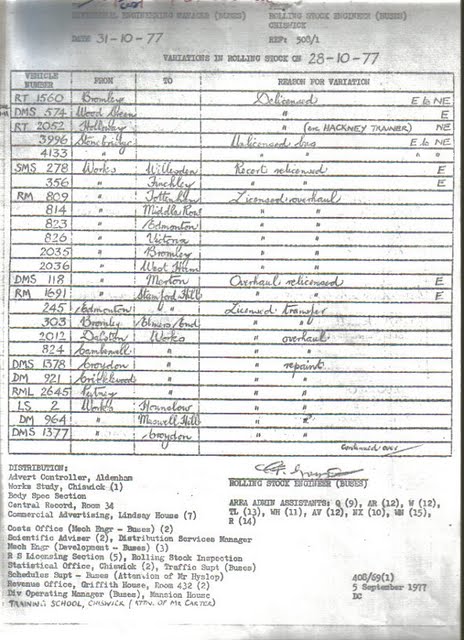 DIVISIONAL ENGINEERING MANAGER (BUSES) ROLLING STOCK ENGINEER (BUSES)
East CHISWICK
DATE 31-10-77 REF: 508/1
VARIATIONS IN ROLLING STOCK ON 28-10-77
VEHICLE NUMBER FROM TO REASON FOR VARIATION
RT 1560 Bromley Delicensed E to NE
DMS 574 Wood Green " E
RT 2052 Holloway " (exc HACKNEY TRAINER) NE
3996 Stonebridge Unlicensed dus E to NE
4133 " " " " "
SMS 278 Works Willesden Recert relicensed E
356 " Finchley " " E
RM 809 " Tottenham Licensed overhaul
814 " Middle Row " "
823 " Edmonton " "
826 " Victoria " "
2035 " Bromley " "
2036 " West Ham " "
DMS 118 " Merton Overhaul relicensed E
RM 1691 " Stamford Hill " " E
245 Edmonton " Licensed transfer
303 Bromley Elmers End " "
2012 Dalston Works " overhaul
824 Camberwell " " "
DMS 1378 Croydon " " repaint
DM 921 Cricklewood " " "
RML 2645 Putney " " "
LS 2 Works Hounslow " "
DM 964 " Muswell Hill "
DMS 1377 " Croydon " "
Continued over
DISTRIBUTION:
Advert Controller, Aldenham
Works Study, Chiswick (1)
Body Spec Section
Central Record, Room 34
Commercial Advertising, Lindsay House (7)
Costs Office (Mech Engr - Buses) (2)
Scientific Adviser (2), Distribution Services Manager
Mech Engr (Development - Buses) (3)
R S Licensing Section (5), Rolling Stock Inspection
Statistical Office, Chiswick (2), Traffic Supt (Buses)
Schedules Supt - Buses (Attension of Mr Hyslop)
Revenue Office, Griffith House, Room 432 (2)
Div Operating Manager (Buses), Mansion House
TRAINING SCHOOL, CHISWICK (ATTN. OF MR CARTER)
ROLLING STOCK ENGINEER (BUSES)
AREA ADMIN ASSISTANTS: Q (9), AR (12), W (12),
TL (13), WH (11), AV (12), NX (10), WN (15),
R (14)
408/69(1)
5 September 1977
DC